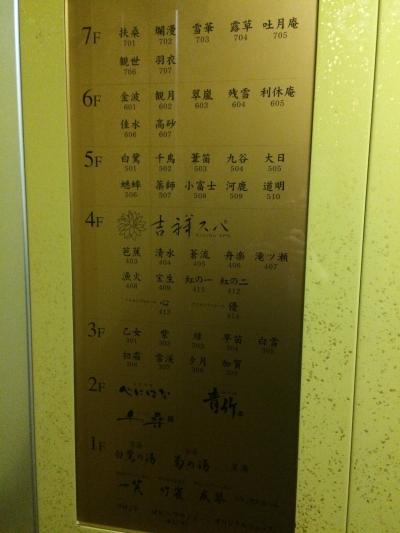 7F 扶桑 爛漫 雪華 露草 吐月庵
701 702 703 704 705
観世 羽衣
706 707
6F 金波 観月 翠嵐 残雪 利休庵
601 602 603 604 605
佳水 高砂
606 607
5F 白鷺 千鳥 葦笛 九谷 大日
501 502 503 504 505
蟋蟀 薬師 小富士 河鹿 道明
506 507 508 509 510
4F 吉祥スパ
芭蕉 清水 蒼流 舟楽 滝ツ瀬
403 404 405 406 407
漁火 宝生 紅の一 紅の二
408 409 411 412
心 優
413 414
3F 乙女 紫 緑 早苗 白雪
301 302 303 304 305
初霜 雪渓 夕月 加賀
2F べにはな 青竹
1F 白鷺の湯 菊の湯
一笑 竹雀 友琴